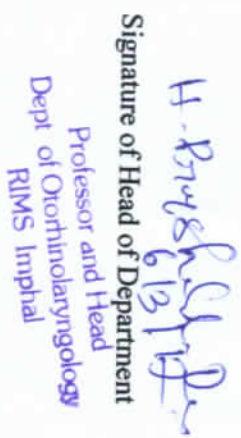 H.
6/3
Signature of Head of Department
Professor and Head
Dept of Otorhinolaryngology
RIMS Imphal